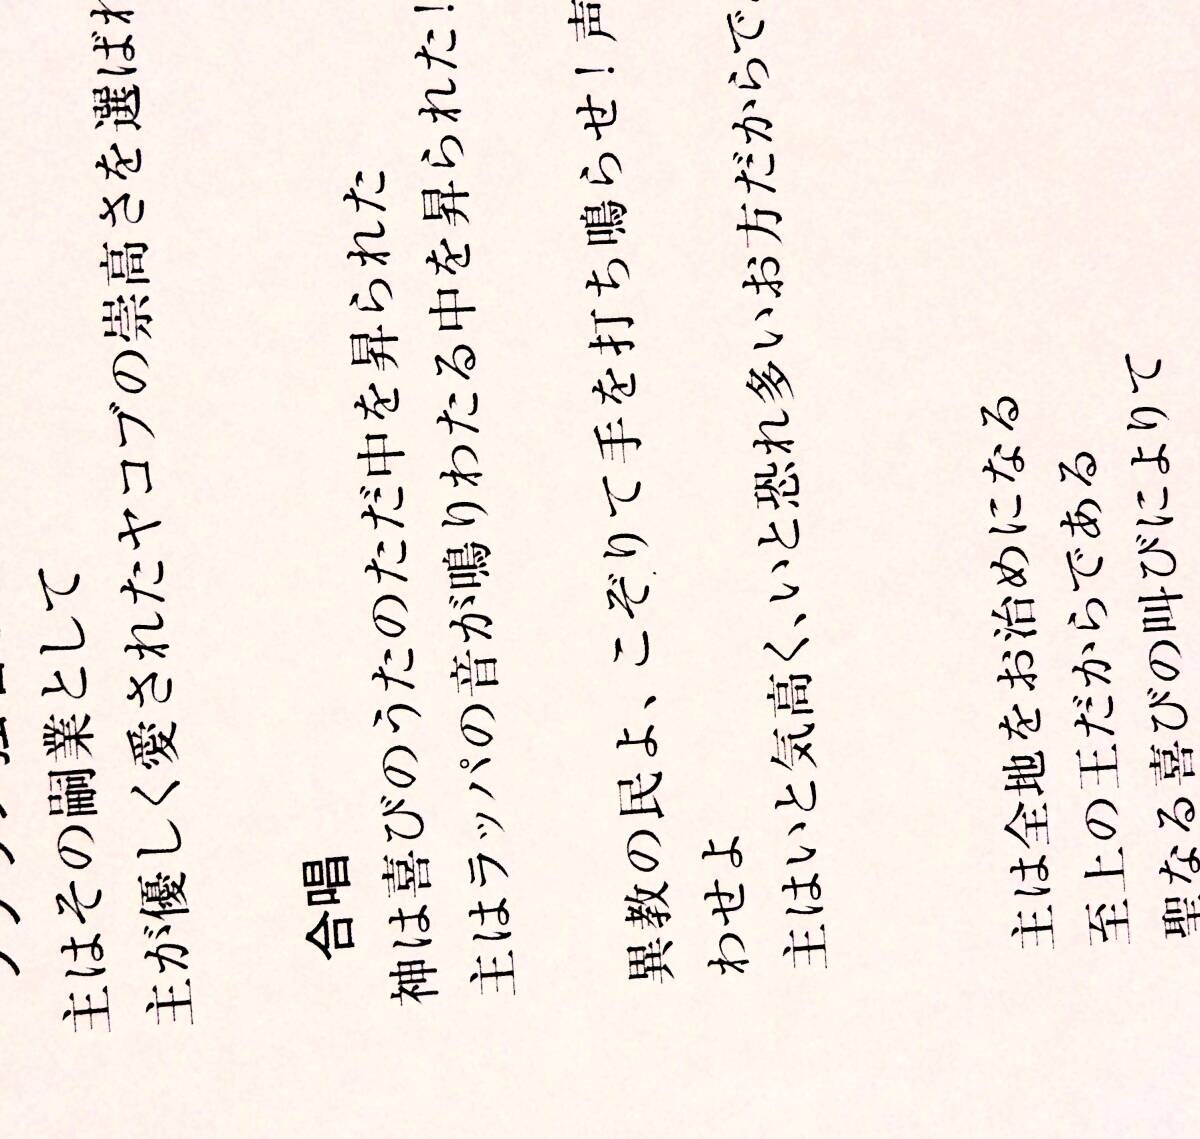 主はその嗣業として
主が優しく愛されたヤコブの崇高さを選ばれ
合唱
神は喜びのうたのただ中を昇られた
主はラッパの音が鳴りわたる中を昇られた!
異教の民よ、こぞりて手を打ち鳴らせ!声
わせよ
主はいと気高く、いと恐れ多いお方だからで
主は全地をお治めになる
至上の王だからである
聖なる喜びの叫びによりて